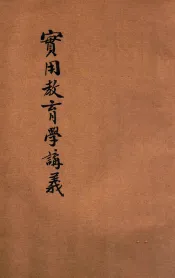 實用教育學講義